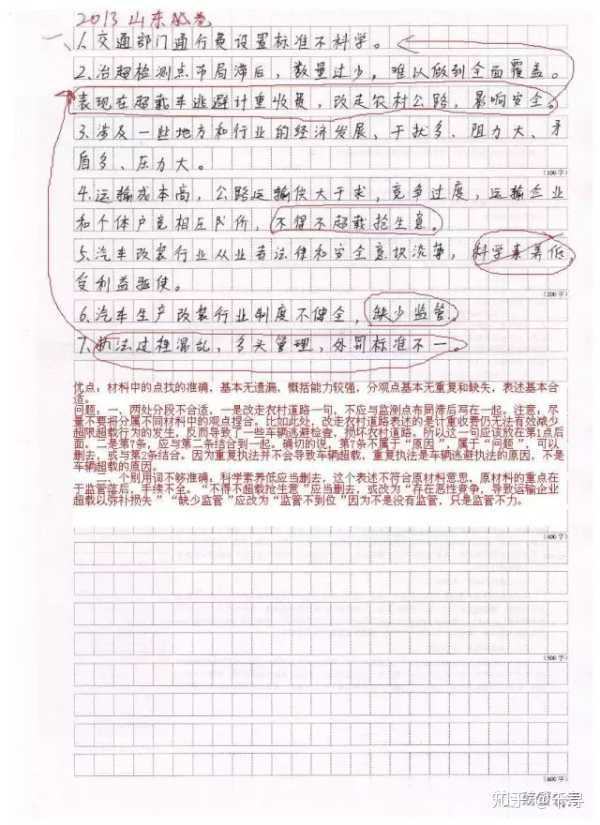 2013 山东 试卷
一、1.交通部门通行费设置标准不科学。
2.治超检测点布局滞后，数量过少，难以做到全面覆盖。
表现在超载车逃避计重收费，改走农村公路，影响安全。
3.涉及一些地方和行业的经济发展，干扰多、阻力大、矛
盾多、压力大。
(100字)
4.运输成本高，公路运输供大于求，竞争过度，运输企业
和个体户竞相压价，不得不超载抢生意。
5.汽车改装行业从业者法律和安全意识淡薄，科学素养低，
(200字)
受利益驱使。
6.汽车生产改装行业制度不健全，缺少监管。
7.执法过程混乱，多头管理，处罚标准不一。
优点：材料中的点找的准确，基本无遗漏，概括能力较强，分观点基本无重复和缺失，表述基本合
适。
问题，一、两处分段不合适，一是改走农村道路一句，不应与监测点布局滞后写在一起。注意，尽
量不要将分属不同材料中的观点捏合。比如此处，改走农村道路表述的是计重收费仍无法有效减少
超限超载行为的发生，反而导致了一些车辆逃避检查，损坏农村道路。所以这一句应该放在第1点后
面。二是第7条，应与第二条结合到一起。确切的说，第7条不属于“原因”，属于“问题”，可以
删去，或与第2条结合。因为重复执法并不会导致车辆超载，重复执法是车辆逃避执法的原因，不是
车辆超载的原因。
二、个别用词不够准确，科学素养低应当删去，这个表述不符合原材料意思，原材料的重点在
于监管落后，手续不全。“不得不超载抢生意”应当删去，或改为“存在恶性竞争，导致运输企业
超载以弥补损失” “缺少监管”应改为“监管不到位”因为不是没有监管，只是监管不力。
(400字)
(500字)
(600字)
知乎